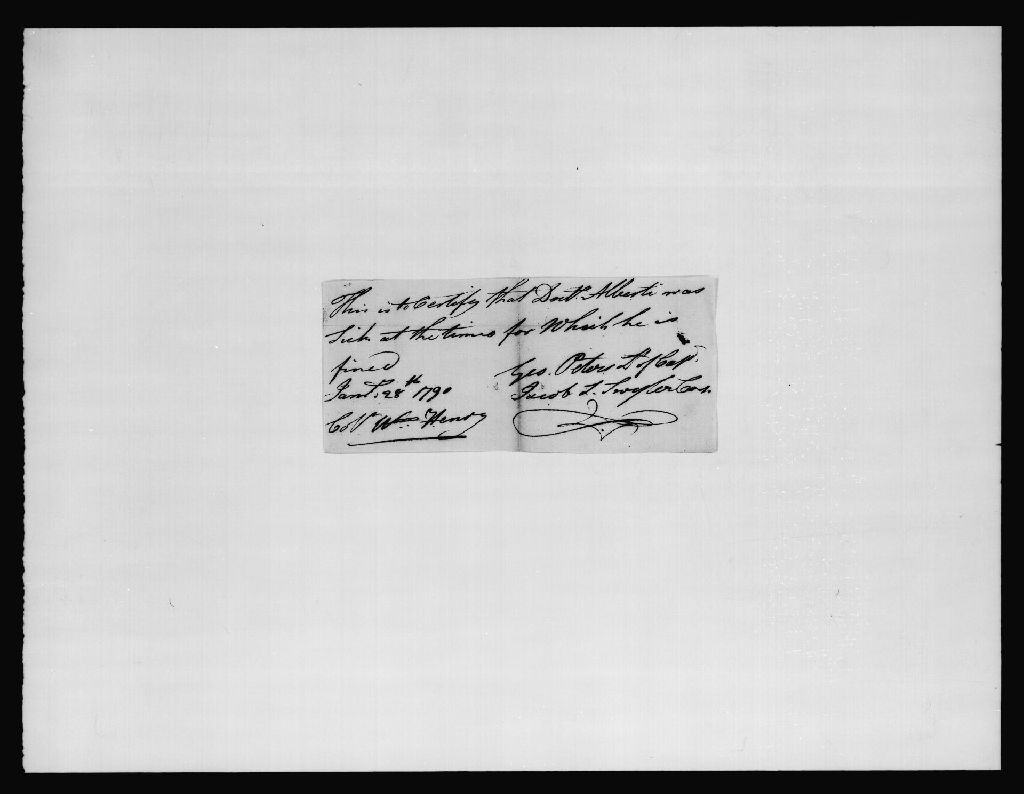 This is to Certify that Doctr. Alberti was
Sick at the times for Which he is
fined
Geo. Peters
Jany. 28th 1790
Jacob L. Swyler
Coll. Wm. Henry